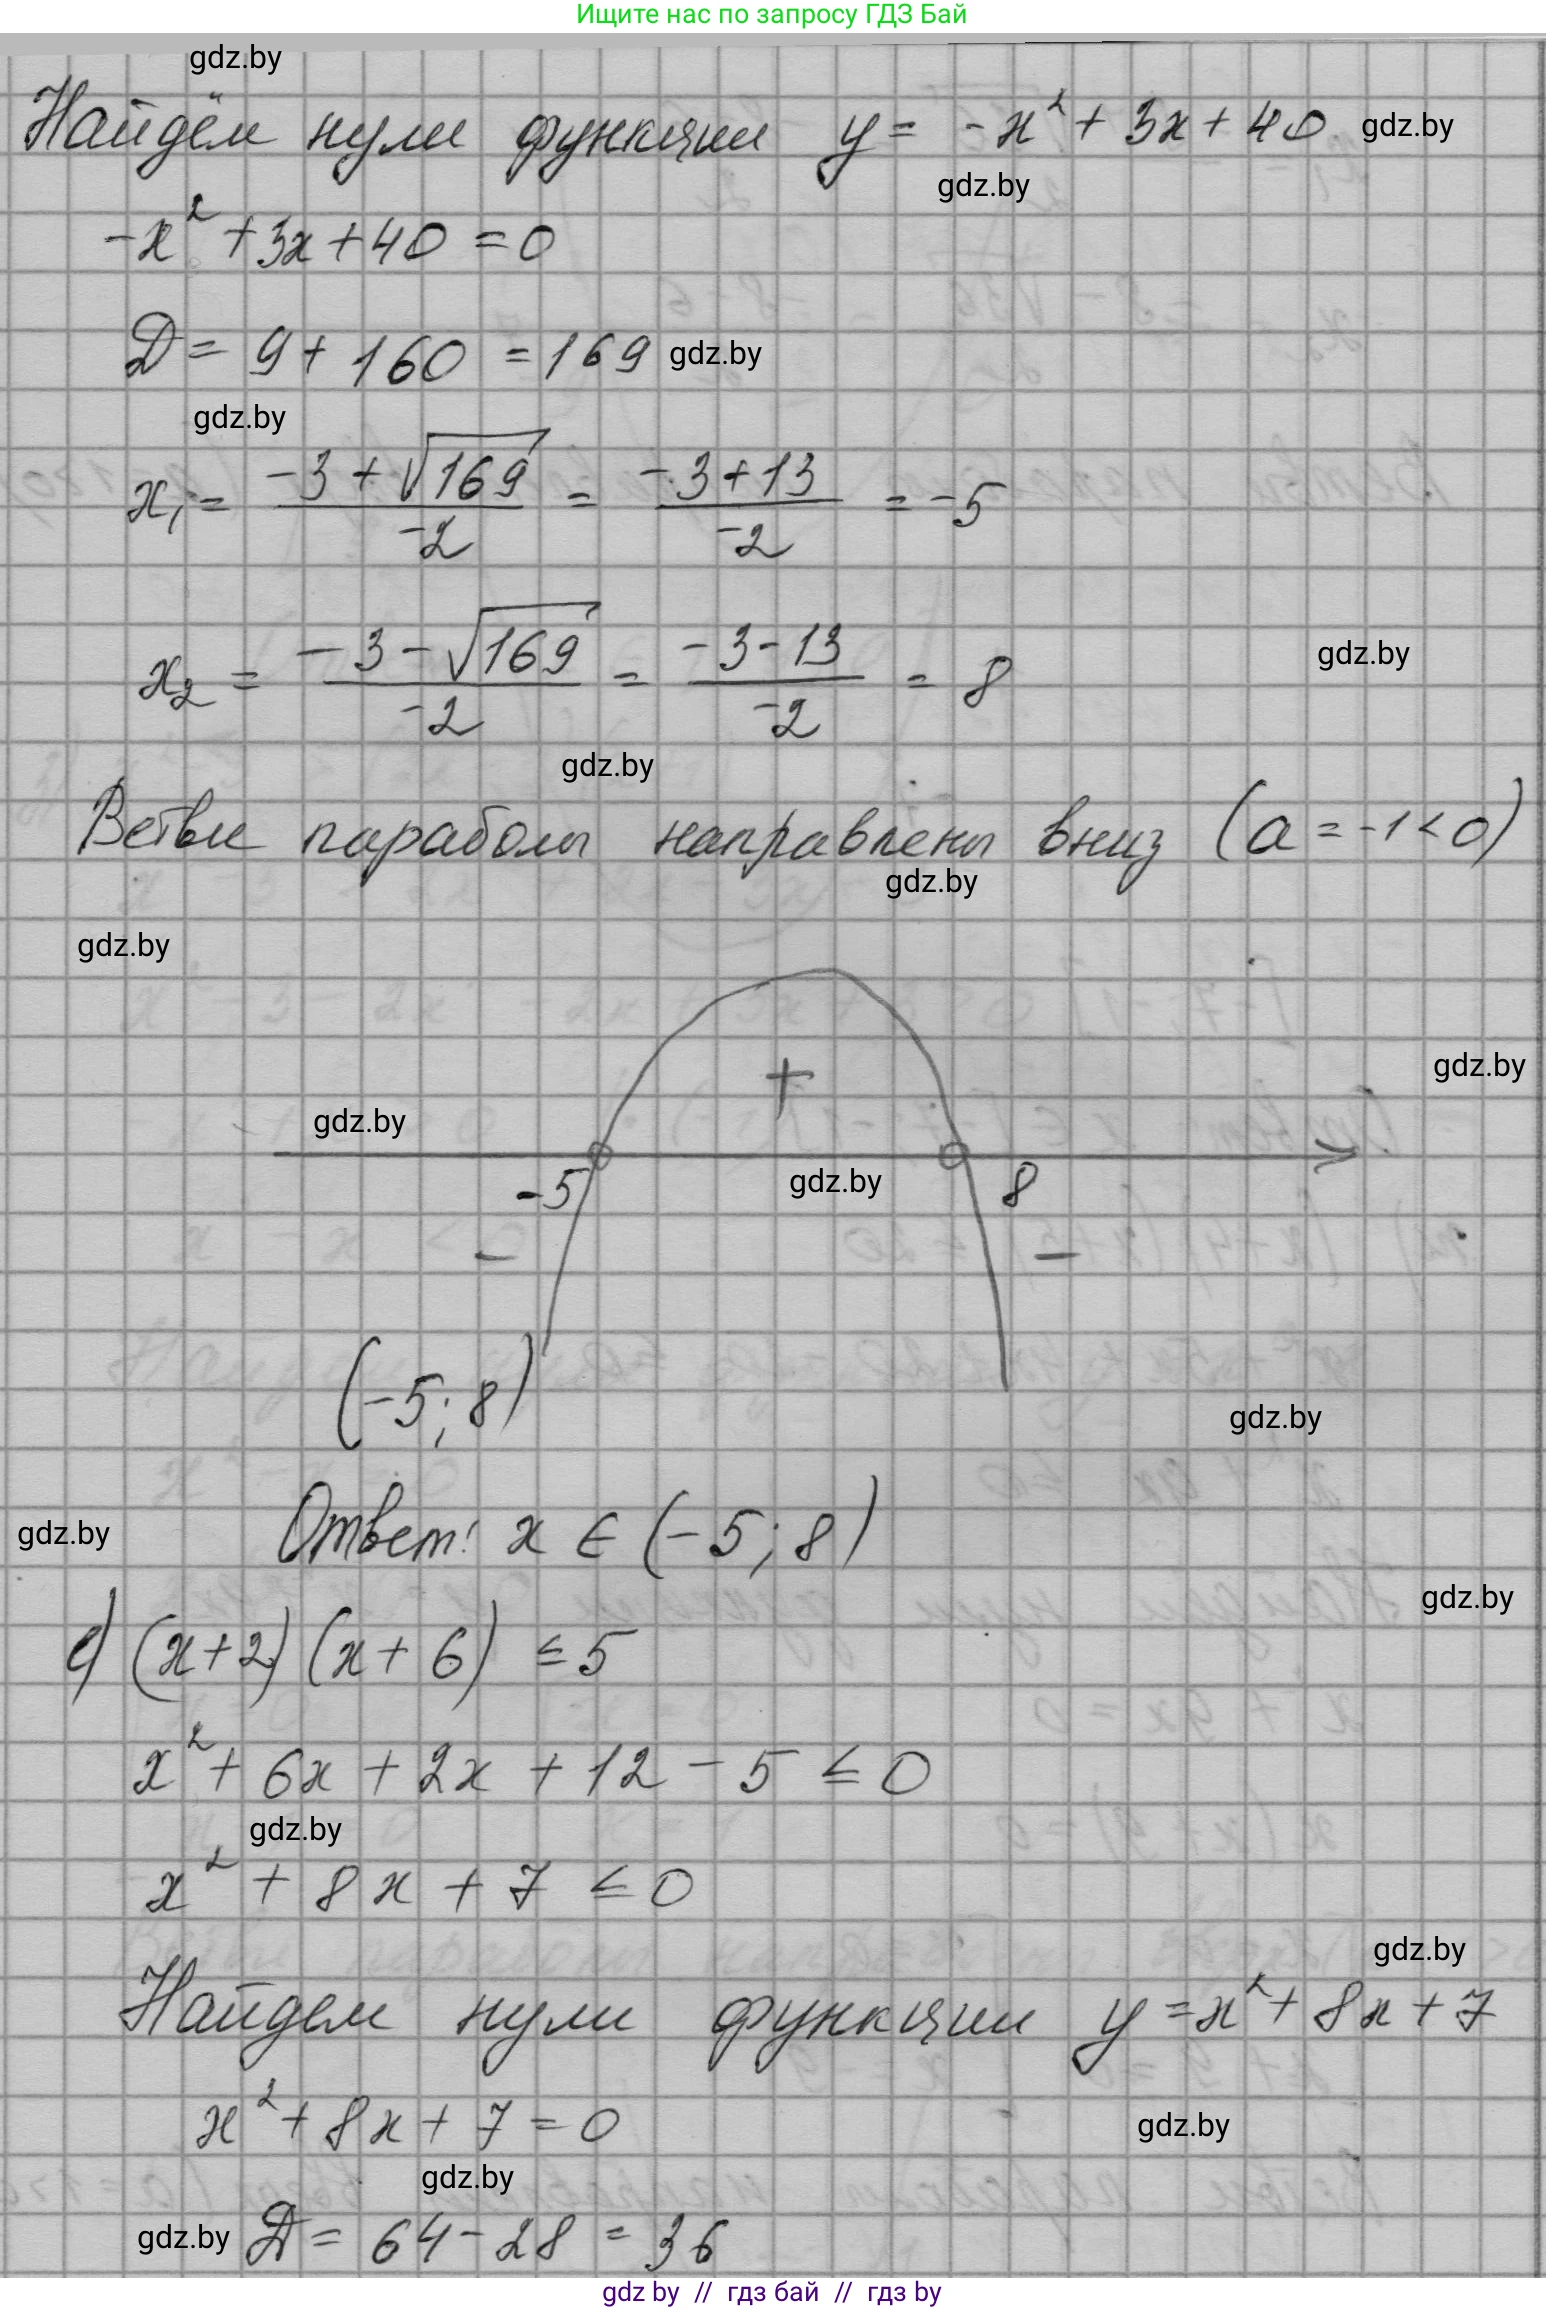 Ищите нас по запросу ГДЗ Бай
gdz.by
Найдём нули функции y = -x² + 3x + 40 gdz.by
gdz.by
-x² + 3x + 40 = 0
D = 9 + 160 = 169 gdz.by
gdz.by
x₁ = (-3 + √169)/(-2) = (-3 + 13)/(-2) = -5
x₂ = (-3 - √169)/(-2) = (-3 - 13)/(-2) = 8
gdz.by
gdz.by
Ветви параболы направлены вниз (a = -1 < 0)
gdz.by
gdz.by
+
gdz.by
gdz.by
-5
gdz.by
8
-
-
(-5; 8)
gdz.by
Ответ: x ∈ (-5; 8)
gdz.by
gdz.by
е) (x+2)(x+6) ≤ 5
x² + 6x + 2x + 12 - 5 ≤ 0
gdz.by
x² + 8x + 7 ≤ 0
gdz.by
Найдем нули функции y = x² + 8x + 7
x² + 8x + 7 = 0
gdz.by
gdz.by
gdz.by D = 64 - 28 = 36
gdz by // гдз бай // гдз by